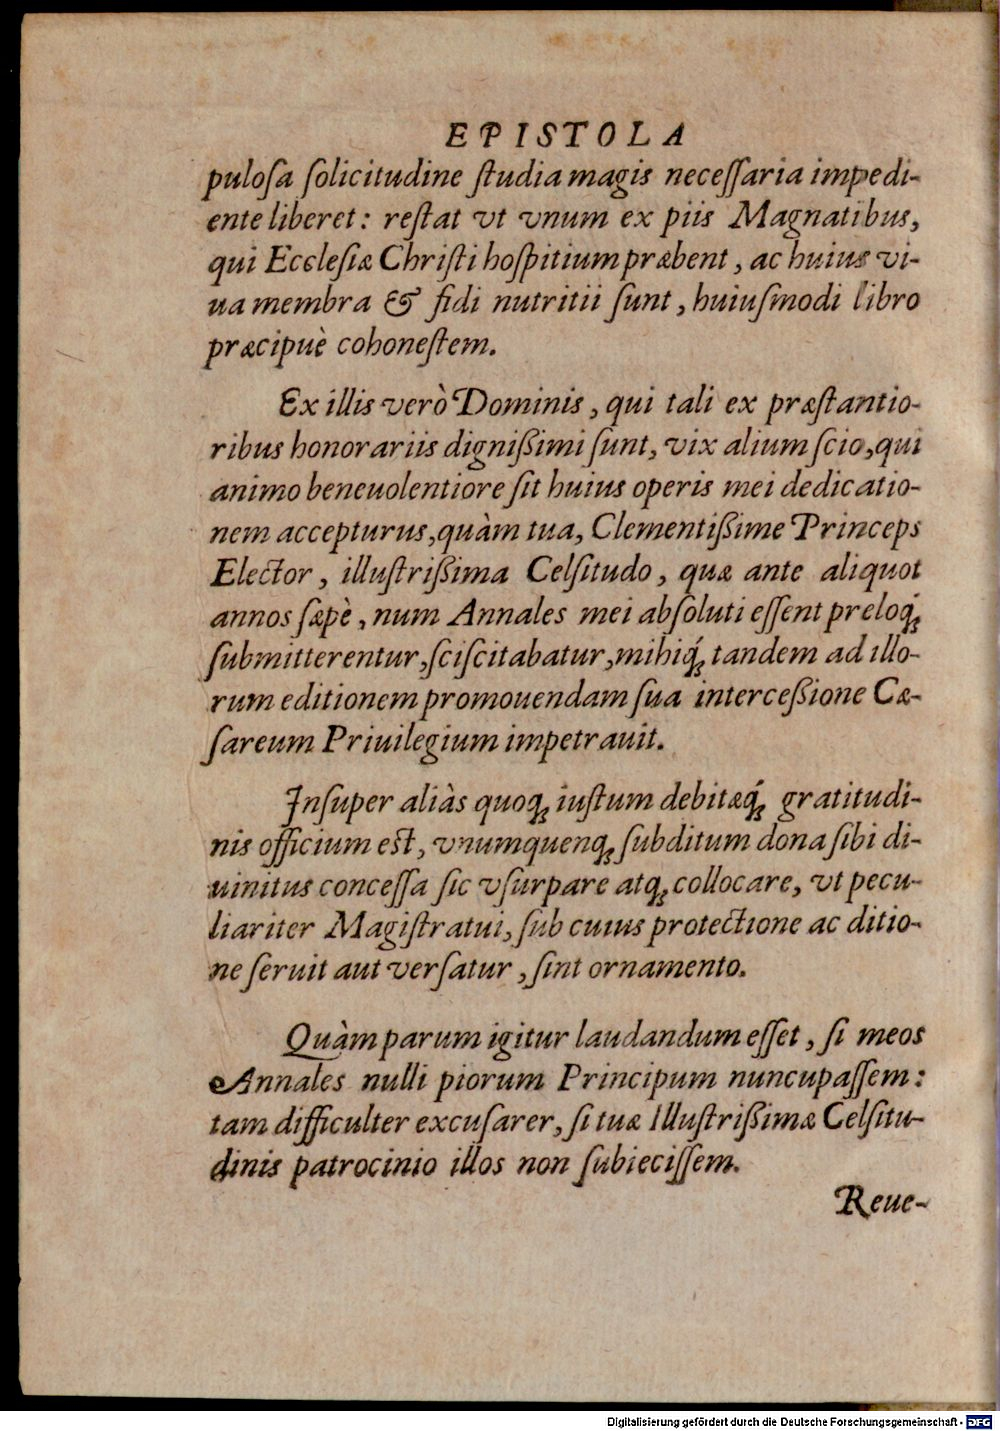 EPISTOLA
puloſa ſolicitudine ſtudia magis neceſſaria impedi-
ente liberet: reſtat vt vnum ex piis Magnatibus,
qui Eccleſiæ Chriſti hoſpitium præbent, ac huius vi-
ua membra & fidi nutritii ſunt, huiuſmodi libro
præcipuè cohoneſtem.
Ex illis verò Dominis, qui tali ex præſtantio-
ribus honorariis digniſſimi ſunt, vix alium ſcio, qui
animo beneuolentiore ſit huius operis mei dedicatio-
nem accepturus, quàm tua, Clementißime Princeps
Elector, illuſtrißima Celſitudo, quæ ante aliquot
annos ſæpè, num Annales mei abſoluti eſſent preloq́ꝫ
ſubmitterentur, ſciſcitabatur, mihiq́ꝫ tandem ad illo-
rum editionem promouendam ſua interceßione Cæ-
ſareum Priuilegium impetrauit.
Inſuper aliàs quoqꝫ iuſtum debitæq́ꝫ gratitudi-
nis officium eſt, vnumquenqꝫ ſubditum dona ſibi di-
uinitus conceſſa ſic vſurpare atqꝫ collocare, vt pecu-
liariter Magiſtratui, ſub cuius protectione ac ditio-
ne ſeruit aut verſatur, ſint ornamento.
Quàm parum igitur laudandum eſſet, ſi meos
Annales nulli piorum Principum nuncupaſſem:
tam difficulter excuſarer, ſi tuæ Illuſtrißimæ Celſitu-
dinis patrocinio illos non ſubieciſſem.
Reue-
Digitalisierung gefördert durch die Deutsche Forschungsgemeinschaft - DFG